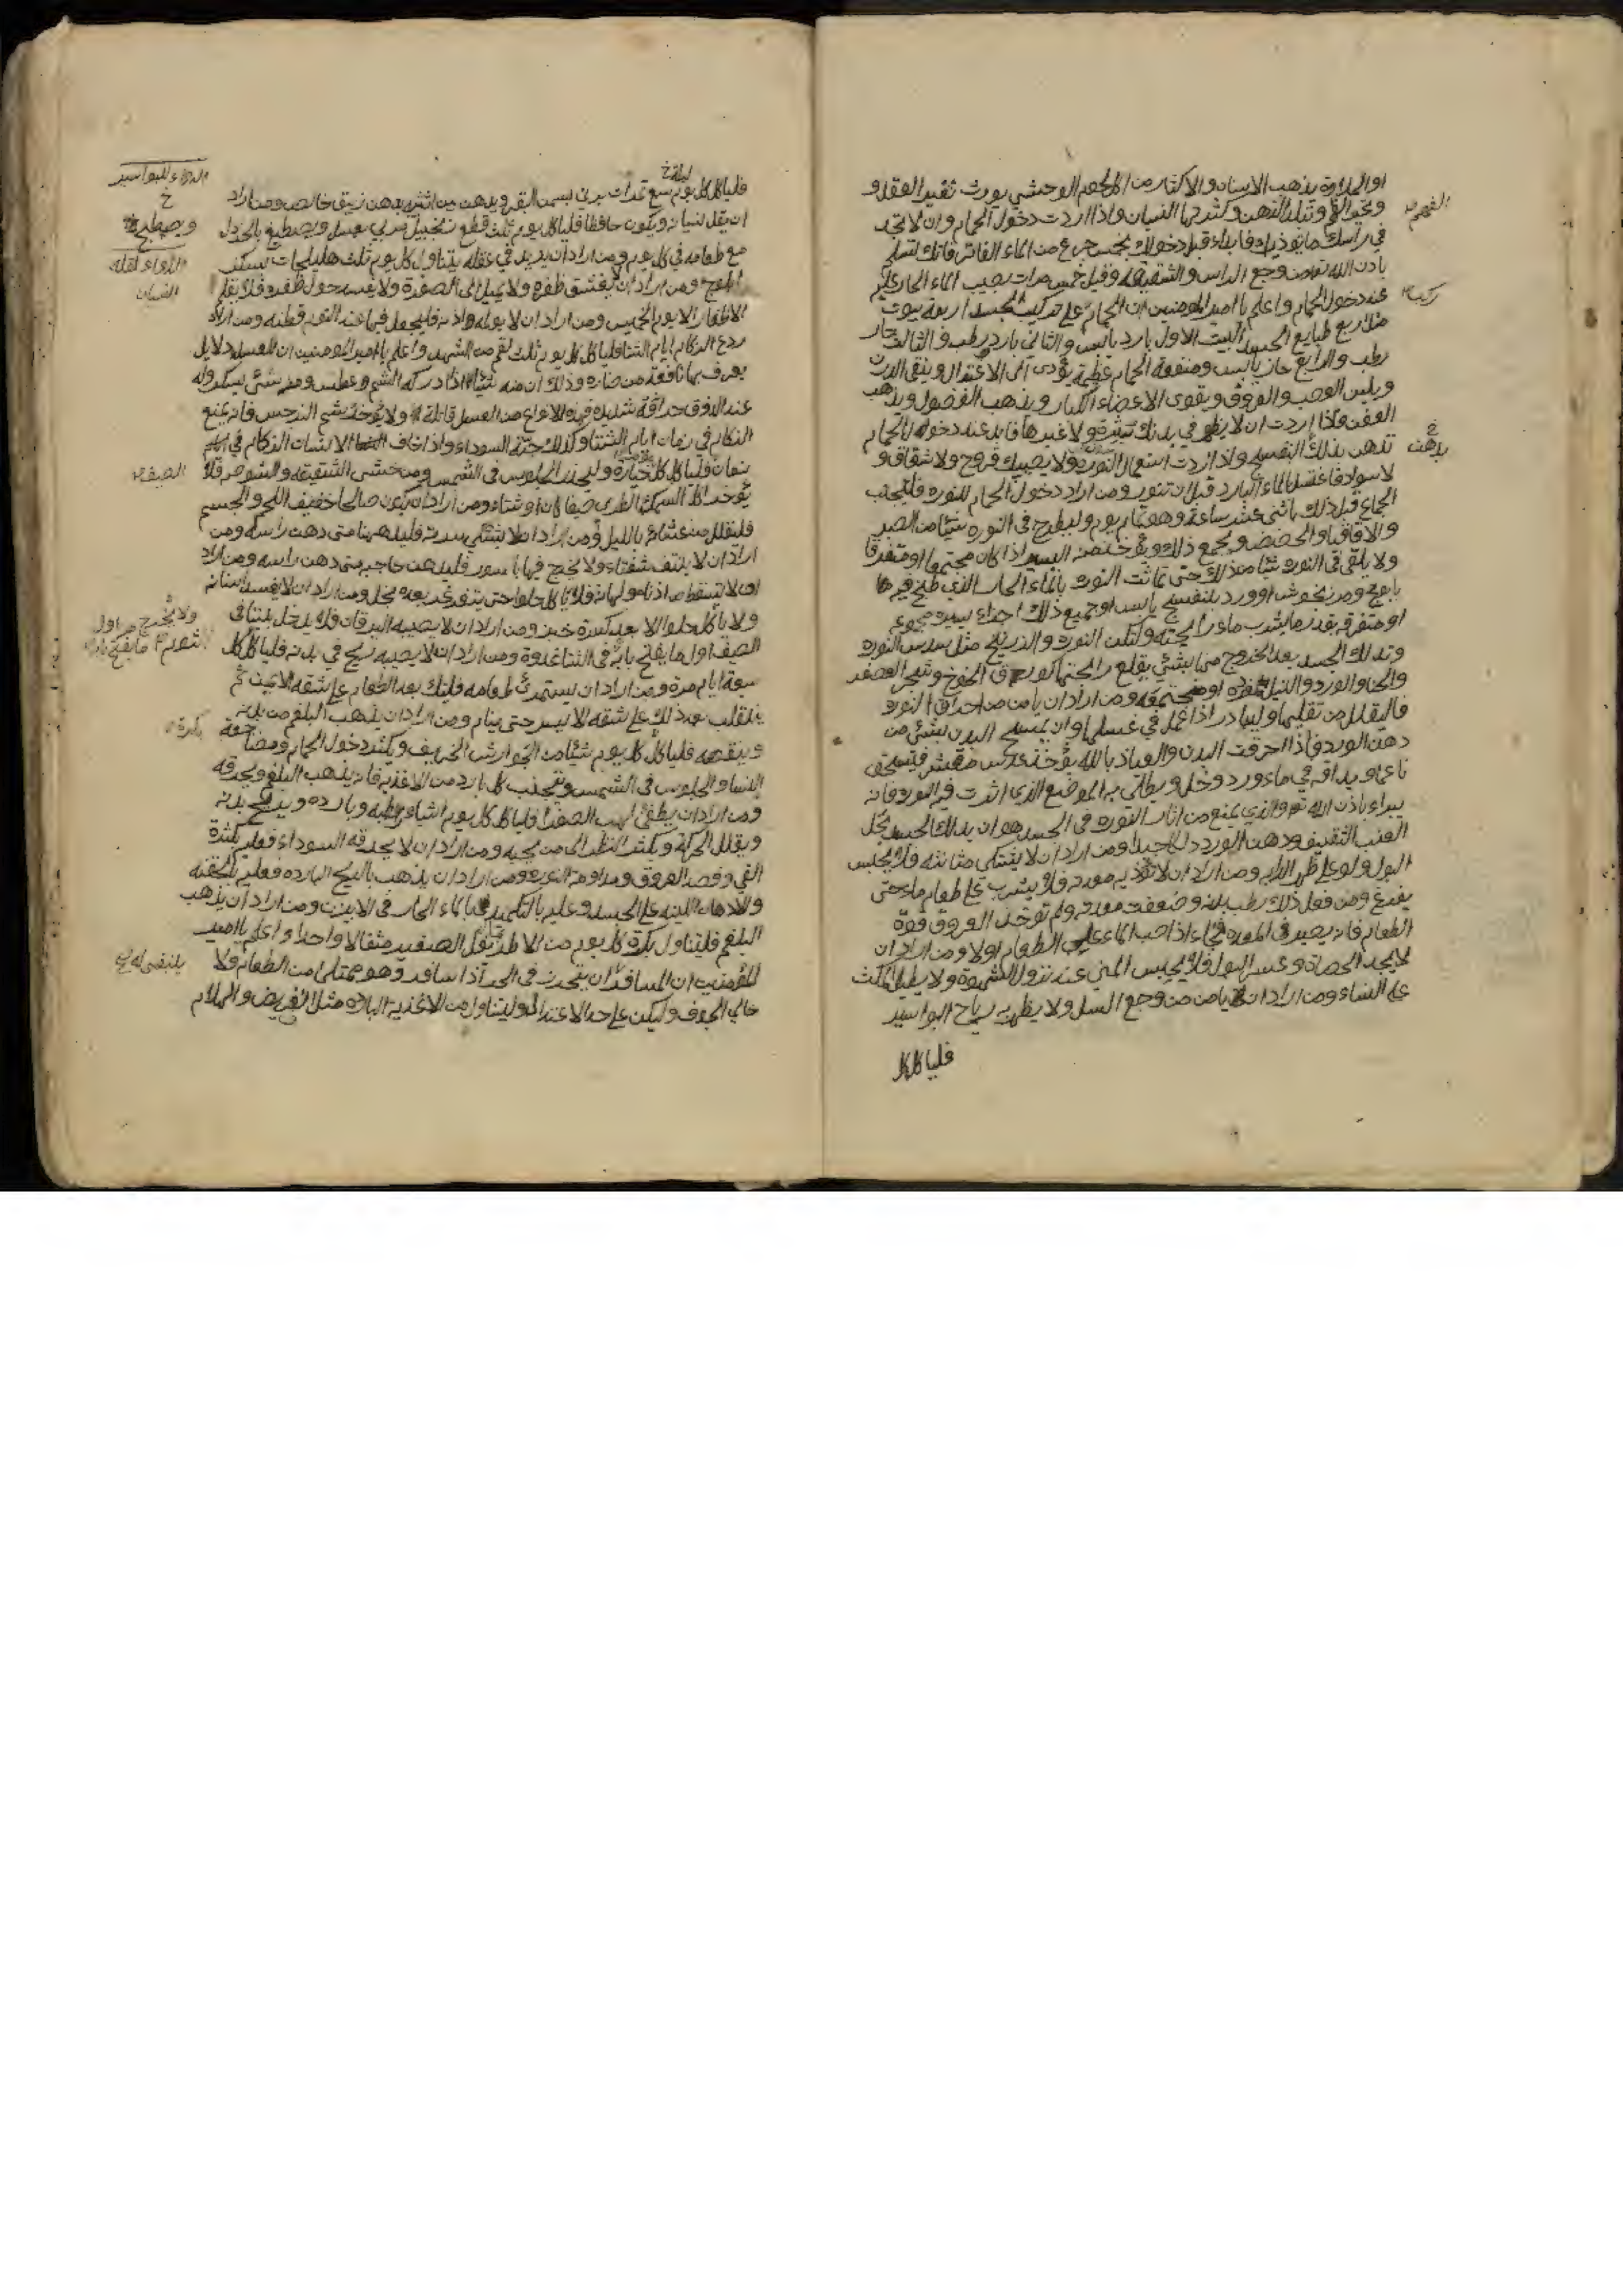 او الحلاوة يذهب الاسنان والاكثار من اكل لحوم الوحشي يورث تغير العقل و
وتحير الفهم وتبلد الذهن وكثرة النسيان واذا اردت دخول الحمام وان لا تجد
الفهم
في رأسك ما يؤذيك فابداء قبل دخولك بخمس جرع من الماء الفاتر فانك تسلم
باذن الله تعالى من وجع الراس والشقيقة وقيل خمس مرات يصيب الماء الحار عليه
عند دخول الحمام واعلم يا امير المومنين ان الحمام على تركيب الجسد اربعة بيوت
ركب
مثل اربع طبايع الجسد البيت الاول بارد يابس والثاني بارد رطب والثالث حار
رطب والرابع حار يابس ومنفعة الحمام عظيمة يؤدى الى الاعتدال وينقى الدرن
ويلين العصب والعروق ويقوى الاعضاء الكبار ويذهب الفضول ويذهب
العفن واذا اردت ان لا يظهر في بدنك بثرة ولا غيرها فابد عند دخولك الحمام
تدهن بدنك البنفسج واذا اردت استعمال النورة ولا يصيبك قروح ولا شقاق و
بدهن خ
لا سواد فاغتسل بالماء البارد قبل ان تنور ومن اراد دخول الحمام للنورة فليجتنب
الجماع قبل ذلك باثنى عشر ساعة وهو تمام يوم وليطرح في النورة شيئا من الصبر
والاقاقيا والحضض ويجمع ذلك ويؤخذ منه اليسير اذا كان مجتمعا او متفرقا
ولا يلقى في النورة شيئا من ذلك حتى تماث النورة بالماء الحار الذى طبخ فيه ها
بابونج ومرزنجوش او ورد بنفسج يابس او جميع ذلك اجزاء يسيرة مجموعة
او متفرقة بقدر ما يشرب ماء رائحته ولتكن النورة والزرنيخ مثل سدس النورة
وتدلك الجسد بعد الخروج منها بشئي يقلع رائحتها كورق الخوخ وثجير العصفر
والحنا والورد والنيل مفرده او مجتمعة ومن اراد ان يامن من احراق النورة
فاليقلل من تقليبها وليبادر اذا عمل في غسلها وان يمسح البدن بشئي من
دهن الورد فاذا احرقت البدن والعياذ بالله يؤخذ عدس مقشر فيسحق
ناعما ويداف في ماء ورد وخل ويطلى به الموضع الذى اثرت فيه النورة فانه
يبراء باذن الله تعالى والذى يمنع من اثار النورة في الجسد هو ان يدلك الجسد بخل
العنب الثقيف ودهن الورد دلكا جيدا ومن اراد ان لا يشتكى مثانته فلا يحبس
البول ولو على ظهر الدابه ومن اراد ان لا تؤذيه معدته فلا يشرب على طعام ماء حتى
يفرغ ومن فعل ذلك رطب بدنه وضعفت معدته ولم توخذ العروق قوة
الطعام فانه يصير في المعدة فجاء اذا صب الماء على الطعام اولا ومن اراد ان
لا يجد الحصاة وعسر البول فلا يحبس المني عند نزول الشهوة ولا يطيل المكث
على النساء ومن اراد ان يامن من وجع السل ولا يظهر به رياح البواسير
فلياكل كل
فلياكل كل يوم سبع تمرات برنى بسمن البقر ويدهن بين انثييه بدهن زيبق خالص ومن اراد
ليلة خ
الدواء للبواسير
ان يقل نسيانه ويكون حافظا فلياكل يوم ثلث قطع زنجبيل مربي بعسل ويصطبغ بالخردل
ويصطبح خ
مع طعامه في كل يوم ومن اراد ان يزيد في عقله يتناول كل يوم ثلث هليلجات بسكر
الدواء لقلة النسيان
ابلوج ومن اراد ان لا يغشق ظفره ولا يميل الى الصفرة ولا يفسد حول ظفره فلا يقلم
الاظفار الا يوم الخميس ومن اراد ان لا يولمه اذنه فليجعل فيها عند النوم قطنه ومن اراد
ردع الزكام ايام الشتا فلياكل كل يوم ثلث لقم من الشهد واعلم يا امير المومنين ان للعسل دلايل
يعرف بها نافعة من ضاره وذلك ان منه شيئا اذا ادركه الشم عطس ومنه شئى يسكر وله
عند الذوق حراقة شديده فهذه الانواع من العسل قاتلة ولا يؤخر شم النرجس فانه يمنع
الزكام في زمان ايام الشتا وكذلك حبة السوداء واذا خاف الانسان الزكام في
زمان فلياكل كل خيارة وليحذر الجلوس في الشمس ومن خشى الشقيقه والشوصه فلا
الصيف
يؤخر اكل السمك الطرى صيفا كان او شتاء ومن اراد ان يكون صالحا خفيف اللحم والجسم
فليقلل من عشائه بالليل ومن اراد ان لا يشتكى سرته فليدهنها متى دهن راسه ومن
اراد ان لا يشقف شفتاه ولا يخرج فيها باسور فليدهن حاجبه متى دهن راسه ومن اراد
ان لا تسقط اذناه ولهاته فلا ياكل حلوا حتى يتغرغر بعده بخل ومن اراد ان لا يفسد اسنانه
ولا ياكل حلوا الا بعد كسرة خبز ومن اراد ان لا يصيبه اليرقان فلا يدخل بيتا في
ولا يخرج من اول
الصيف اول ما يفتح بابه في الشتا غدوة ومن اراد ان لا يصيبه ريح في بدنه فلياكل كل
سبعة ايام مرة ومن اراد ان يستمرئ طعامه فليتك بعد الطعام على شقه الايمن ثم
ينقلب بعد ذلك على شقه الايسر حتى ينام ومن اراد ان يذهب البلغم من بدنه
وينقصه فلياكل كل يوم شيئا من الجوارش الحريف ويكثر دخول الحمام ومضاجعة
بكرة
النساء والجلوس في الشمس ويجتنب كل بارد من الاغذيه فانه يذهب البلغم ويحرقه
ومن اراد ان يطفئ لهب الصفرا فلياكل كل يوم اشياء رطبه وبارده ويريح بدنه
ويقلل الحركة ويكثر النظر الى من يحبه ومن اراد ان لا يحرقه السوداء فعليه بكثرة
القي وفصد العروق ومداومة النوره ومن اراد ان يذهب بالريح البارده فعليه بالحقنة
والادهان اللينه على الجسد وعليه بالتكميد بالماء الحار في الابزن ومن اراد ان يذهب
البلغم فليتناول بكرة كل يوم من الاطريفل الصغير مثقالا واحدا واعلم يا امير
المؤمنين ان المسافر ان يتحرز في الحر اذا سافر وهو ممتلئ من الطعام ولا
ينبغى له خ
خالي الجوف وليكن على حد الاعتدال وليتناول من الاغذيه البارده مثل القريض والهلام